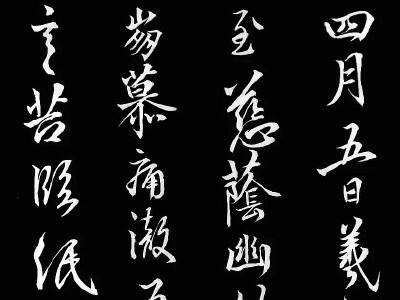 四月五日羲
至慈蔭幽
崩慕痛徹
言苦臨紙